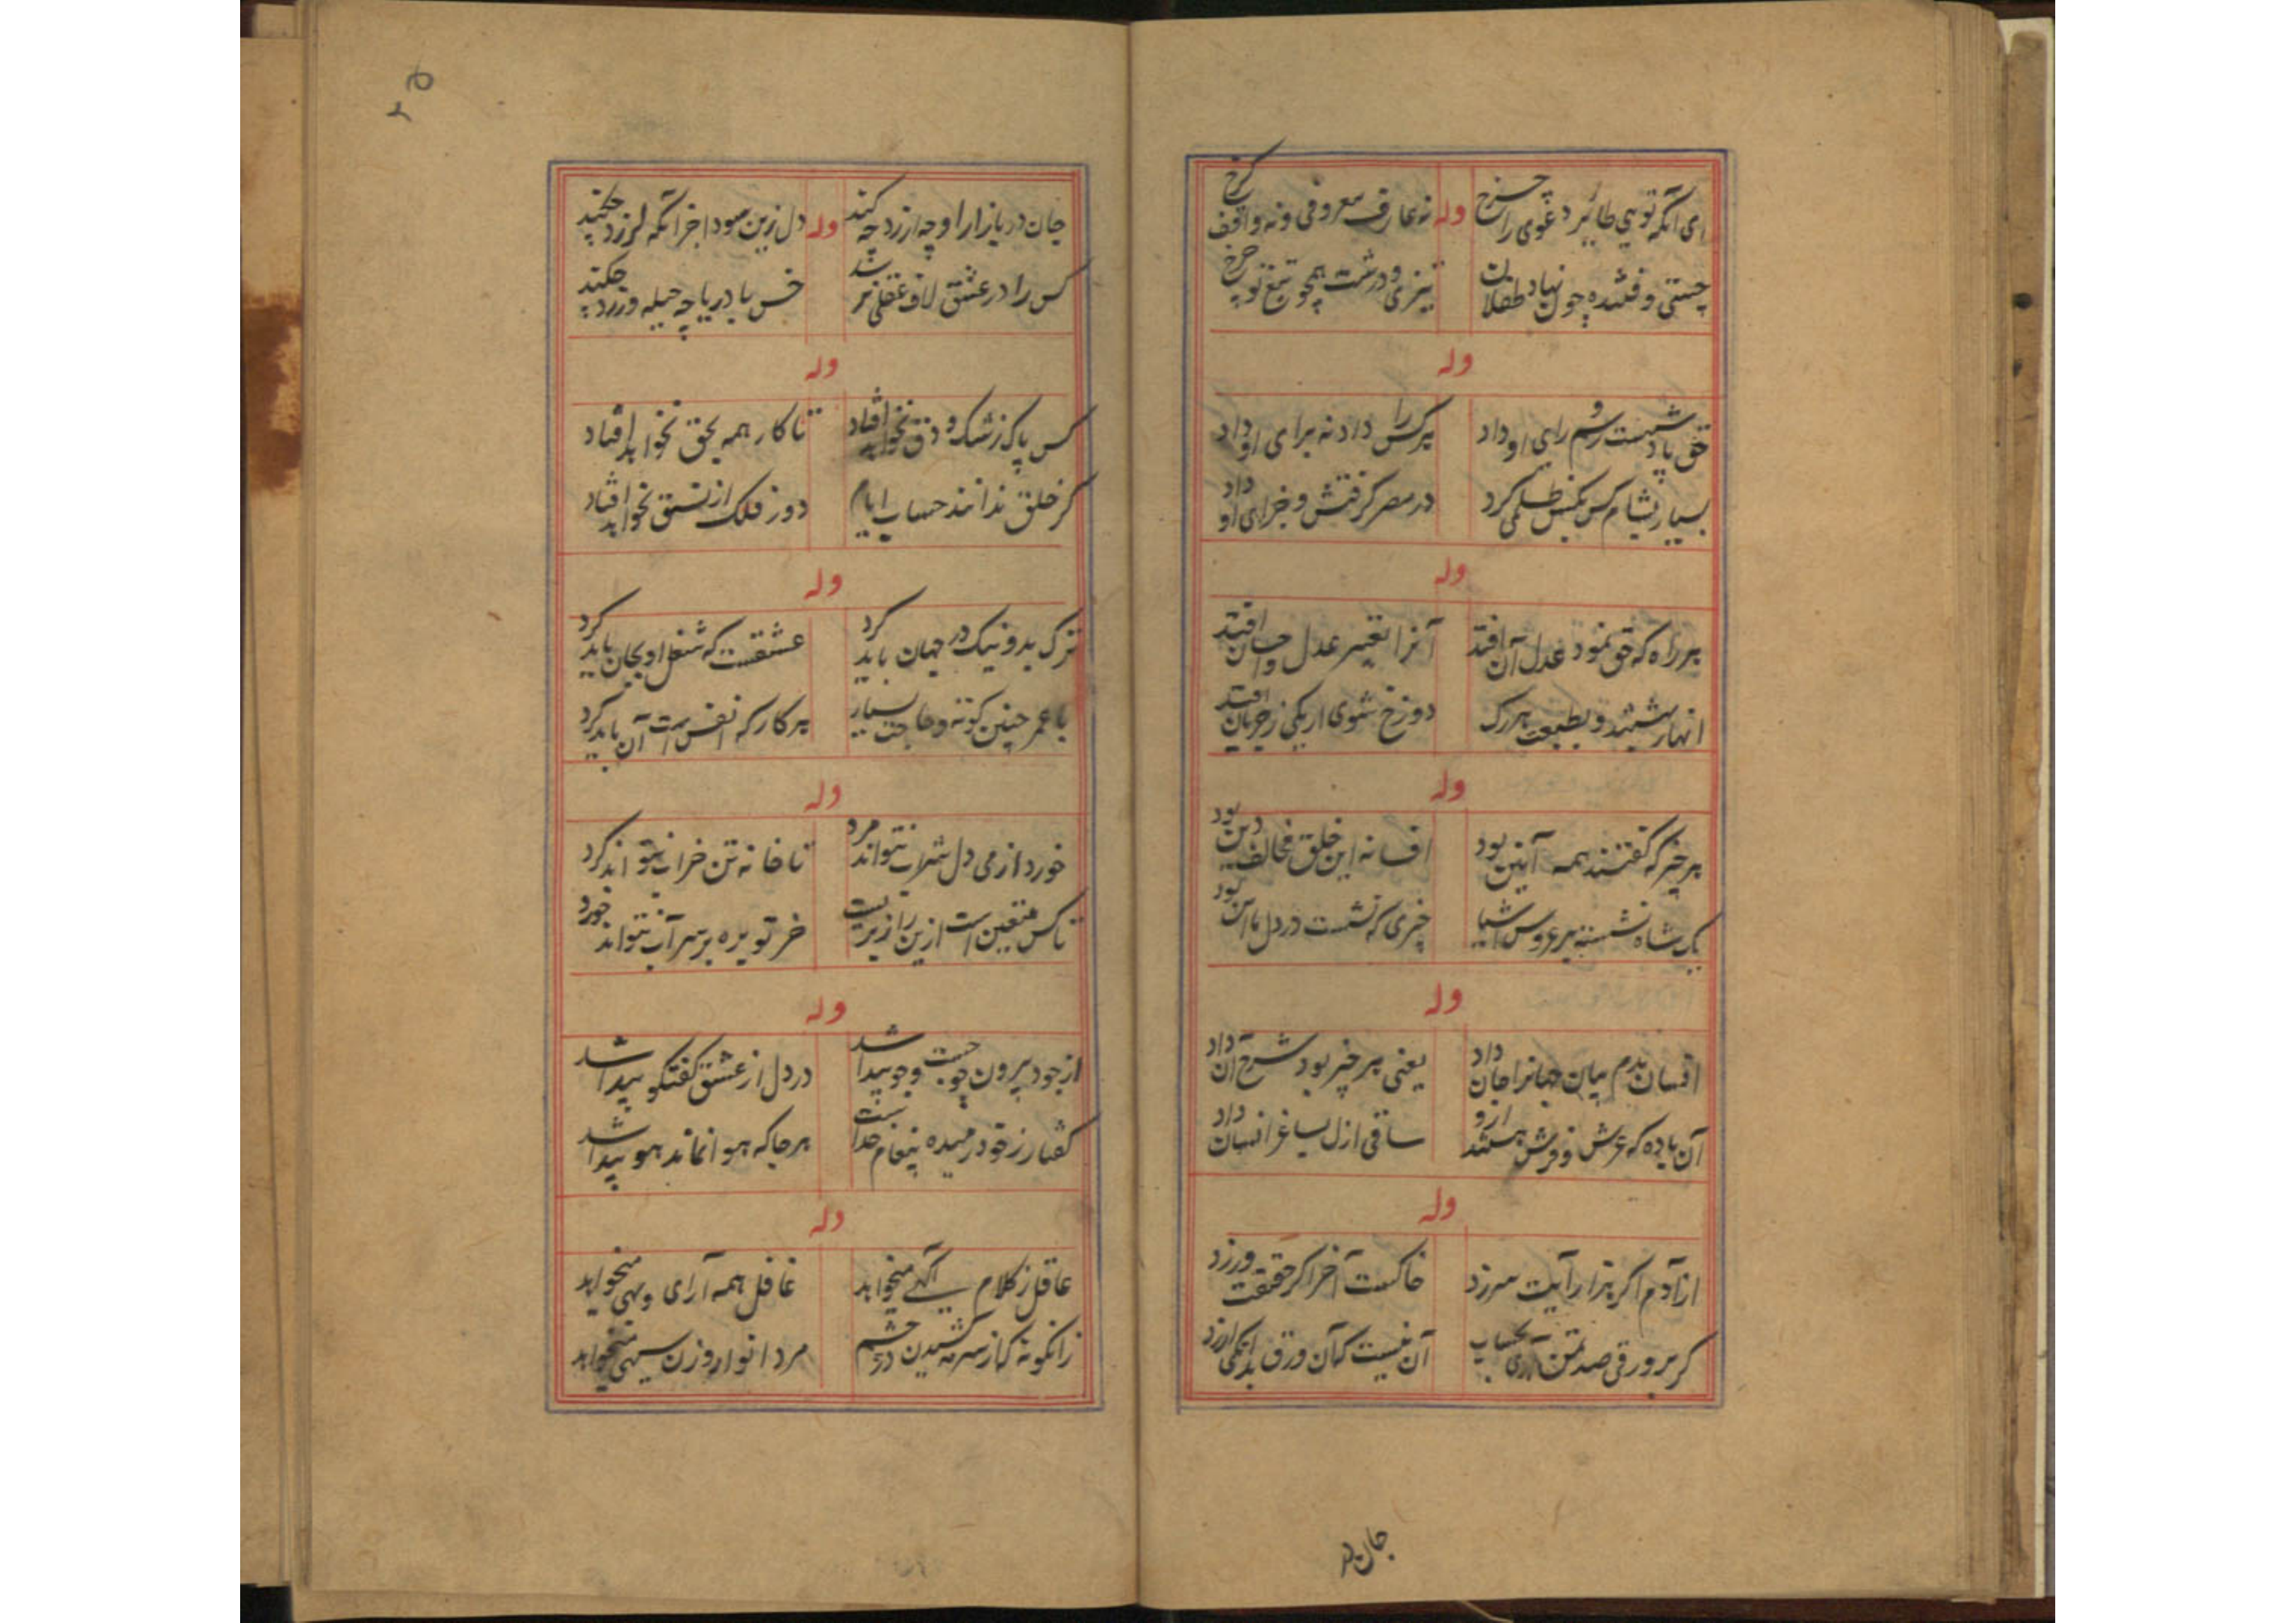 ای آنکه تویی طائر دعوی را چرخ وله نه عارف معروفی و نه واقف کرخ
چستی و فشده چون نهاد طفلان تیزی و درشت همچو تیغ تو چرخ
وله
حق یاد رسم و رای او داد هرکس را داد نه برای او داد
بسیار بشام کس بکس ظلمی کرد در مصر گرفتش و جزای او داد
وله
هر راه که حق نمود عدل آن افتد آنرا تعبیر عدل و احسان افتد
انهار بهشتند و بطبیعت هر رک دوزخ شوی ار یکی ز جریان افتد
وله
هر چیز که گفتند همه آیین بود افسانه این خلق مخالف دین بود
یک شاه نشسته بر عروس اشیا خبری که نشست در دل ما این بود
وله
افسان بدم بیان جهانرا جان داد یعنی هر چیز بود شرح آن داد
آن باده که عرش و فرش هستند ازو ساقی ازل بساغر انسان داد
وله
از آدم اگر هزار آیت سرزد خاکست آخر اگر حقیقت ورزد
گر بر ورقی صد آری بحساب آن نیست که آن ورق بدانگی ارزد
جان در
جان در بازار او چه ارزد چه کند وله دل زین سودا جز آنکه لرزد چکند
کس را در عشق لاف عقلی نرسد خس با دریا چه حیله ورزد چکند
وله
کس پاک ز شک و دق نخواهد افتاد تا کار همه بحق نخواهد افتاد
گر خلق ندانند حساب ایام دور فلک از نسق نخواهد افتاد
وله
ترک بد و نیک در جهان باید کرد عشقست که شغل او بجان باید کرد
با عمر چنین کوته و حاجت بسیار هر کار که انفس است آن باید کرد
وله
خورد از می دل شراب نتواند مرد تا خانه تن خراب نتواند کرد
تا کس متعین است ازین راز بریست خر توبره بر سر آب نتواند خورد
وله
از جود برون چو جست و جو پیدا شد در دل از عشق گفتگو پیدا شد
گفتار ز خود رمیده پیغام خدا هرجا که هوا نماند هو پیدا شد
وله
عاقل ز کلام آگهی میخواهد غافل همه آرای و بهی میخواهد
زانگونه که از سرمه کشیدن در چشم مرد انوار و زن سیهی میخواهد